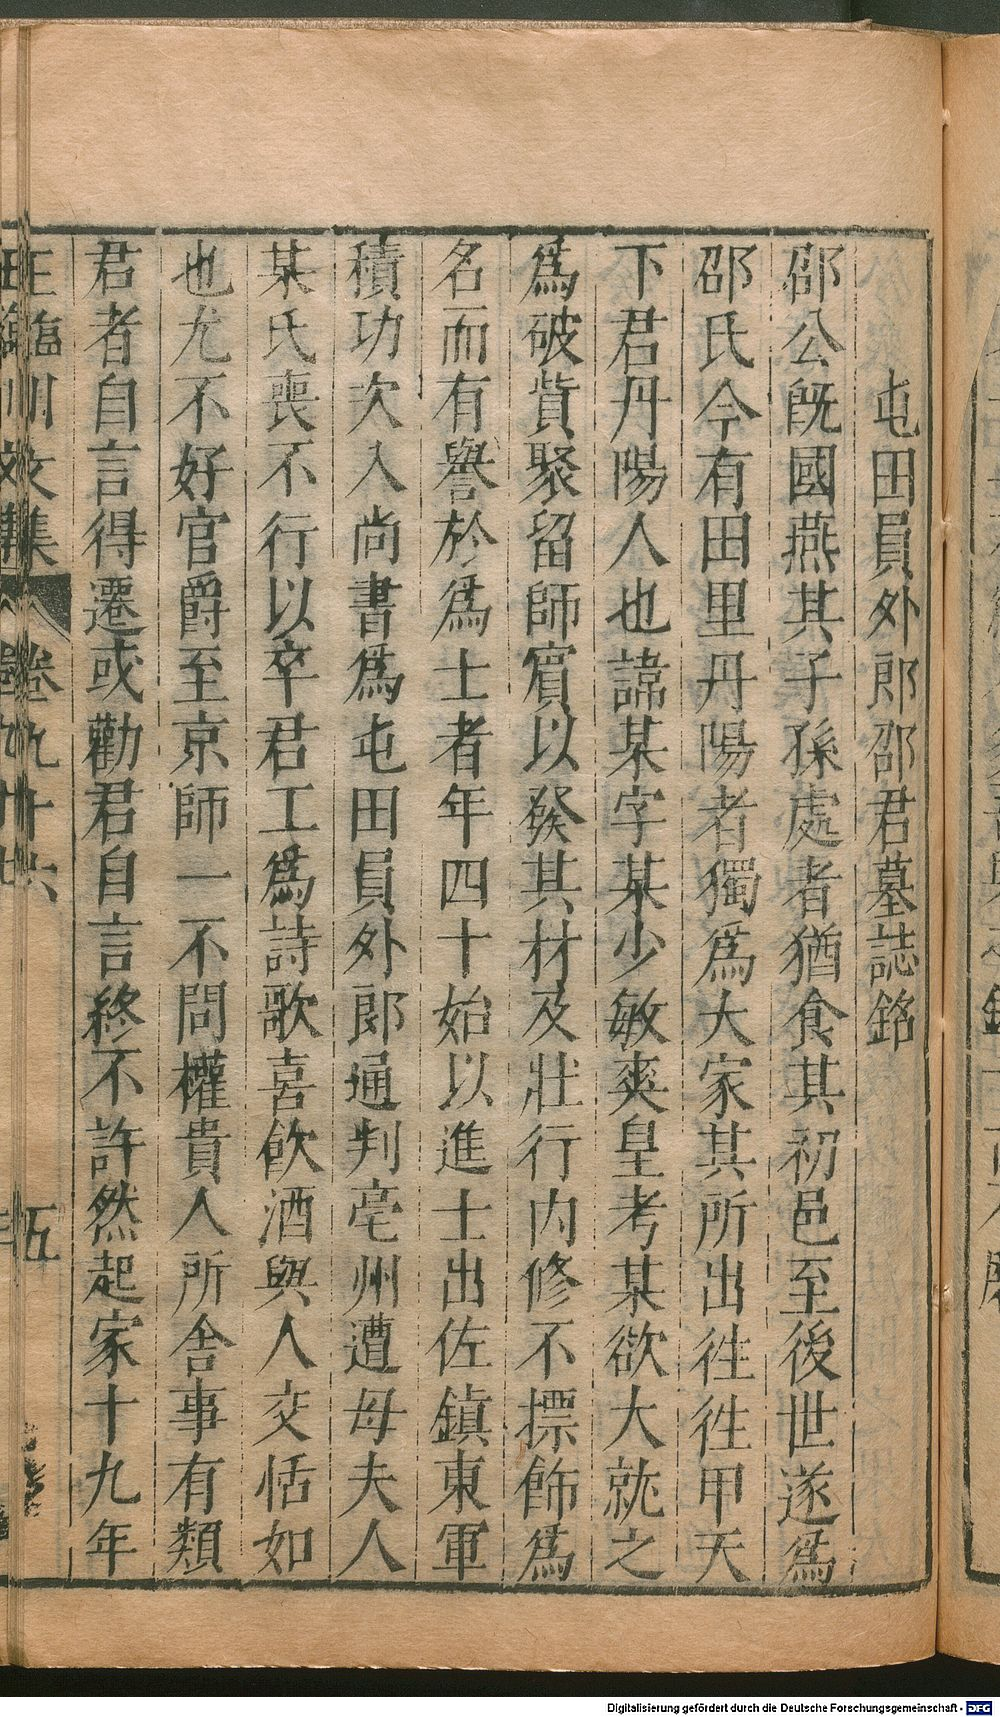 屯田員外郎邵君墓誌銘
邵公旣國燕其子孫處者猶食其初邑至後世遂爲
邵氏今有田里丹陽者獨爲大家其所出徃徃甲天
下君丹陽人也諱某字某少敏爽皇考某欲大就之
爲破貲聚留師賓以發其材及壯行内修不摽飾爲
名而有譽於爲士者年四十始以進士出佐鎮東軍
積功次入尚書爲屯田員外郎通判亳州遭母夫人
某氏喪不行以卒君工爲詩歌喜飮酒與人交恬如
也尤不好官爵至京師一不問權貴人所舍事有類
君者自言得遷或勸君自言終不許然起家十九年
王臨川文集 卷九十六 五
Digitalisierung gefördert durch die Deutsche Forschungsgemeinschaft - DFG